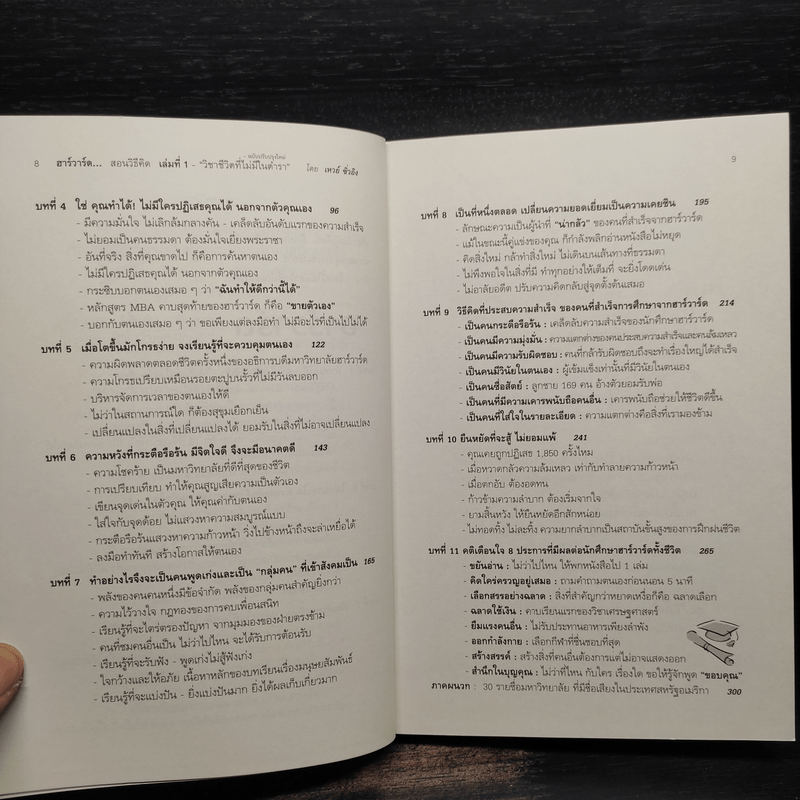 8 ฮาร์วาร์ด... สอนวิธีคิด เล่มที่ 1 - "วิชาชีวิตที่ไม่มีในตำรา" โดย เหวย์ ซิ่วอิง
- ฉบับปรับปรุงใหม่
บทที่ 4 ใช่ คุณทำได้! ไม่มีใครปฏิเสธคุณได้ นอกจากตัวคุณเอง 96
- มีความมั่นใจ ไม่เลิกล้มกลางคัน - เคล็ดลับอันดับแรกของความสำเร็จ
- ไม่ยอมเป็นคนธรรมดา ต้องมั่นใจเยี่ยงพระราชา
- อันที่จริง สิ่งที่คุณขาดไป ก็คือการค้นหาตนเอง
- ไม่มีใครปฏิเสธคุณได้ นอกจากตัวคุณเอง
- กระซิบบอกตนเองเสมอ ๆ ว่า "ฉันทำให้ดีกว่านี้ได้"
- หลักสูตร MBA คาบสุดท้ายของฮาร์เวิร์ด ก็คือ "ขายตัวเอง"
- บอกกับตนเองเสมอ ๆ ว่า ขอเพียงแต่ลงมือทำ ไม่มีอะไรที่เป็นไปไม่ได้
บทที่ 5 เมื่อโตขึ้นมักโกรธง่าย จงเรียนรู้ที่จะควบคุมตนเอง 122
- ความผิดพลาดตลอดชีวิตครั้งหนึ่งของอธิการบดีมหาวิทยาลัยฮาร์เวิร์ด
- ความโกรธเปรียบเหมือนรอยตะปูบนรั้วที่ไม่มีวันลบออก
- บริหารจัดการเวลาของตนเองให้ดี
- ไม่ว่าในสถานการณ์ใด ก็ต้องสุขุมเยือกเย็น
- เปลี่ยนแปลงในสิ่งที่เปลี่ยนแปลงได้ ยอมรับในสิ่งที่ไม่อาจเปลี่ยนแปลง
บทที่ 6 ความหวังที่กระตือรือร้น มีจิตใจดี จึงจะมีอนาคตดี 143
- ความโชคร้าย เป็นมหาวิทยาลัยที่ดีที่สุดของชีวิต
- การเปรียบเทียบ ทำให้คุณสูญเสียความเป็นตัวเอง
- เขียนจุดเด่นในตัวคุณ ให้คุณค่ากับตนเอง
- ใส่ใจกับจุดด้อย ไม่แสวงหาความสมบูรณ์แบบ
- กระตือรือร้นแสวงหาความก้าวหน้า วิ่งไปข้างหน้าถึงจะล่าเหยื่อได้
- ลงมือทำทันที สร้างโอกาสให้ตนเอง
บทที่ 7 ทำอย่างไรจึงจะเป็นคนพูดเก่งและเป็น "กลุ่มคน" ที่เข้าสังคมเป็น 165
- พลังของคนคนหนึ่งมีข้อจำกัด พลังของกลุ่มคนสำคัญยิ่งกว่า
- ความไว้วางใจ กฎทองของการคบเพื่อนสนิท
- เรียนรู้ที่จะไตร่ตรองปัญหา จากมุมมองของฝ่ายตรงข้าม
- คนที่ชมคนอื่นเป็น ไม่ว่าไปไหน จะได้รับการต้อนรับ
- เรียนรู้ที่จะรับฟัง - พูดเก่งไม่สู้ฟังเก่ง
- ใจกว้างและให้อภัย เนื้อหาหลักของบทเรียนเรื่องมนุษยสัมพันธ์
- เรียนรู้ที่จะแบ่งปัน - ยิ่งแบ่งปันมาก ยิ่งได้ผลเก็บเกี่ยวมาก
9
บทที่ 8 เป็นที่หนึ่งตลอด เปลี่ยนความยอดเยี่ยมเป็นความเคยชิน 195
- ลักษณะความเป็นผู้นำที่ "น่ากลัว" ของคนที่สำเร็จจากฮาร์เวิร์ด
- แม้ในขณะนี้คู่แข่งของคุณ ก็กำลังพลิกอ่านหนังสือไม่หยุด
- คิดสิ่งใหม่ กล้าทำสิ่งใหม่ ไม่เดินบนเส้นทางที่ธรรมดา
- ไม่พึงพอใจในสิ่งที่มี ทำทุกอย่างให้เต็มที่ จะยิ่งโดดเด่น
- ไม่อาลัยอดีต ปรับความคิดกลับสู่จุดตั้งต้นเสมอ
บทที่ 9 วิธีคิดที่ประสบความสำเร็จ ของคนที่สำเร็จการศึกษาจากฮาร์เวิร์ด 214
- เป็นคนกระตือรือร้น : เคล็ดลับความสำเร็จของนักศึกษาฮาร์เวิร์ด
- เป็นคนมีความมุ่งมั่น : ความแตกต่างของคนประสบความสำเร็จและคนล้มเหลว
- เป็นคนมีความรับผิดชอบ : คนที่กล้ารับผิดชอบถึงจะทำเรื่องใหญ่ได้สำเร็จ
- เป็นคนมีวินัยในตนเอง : ผู้เข้มแข็งเท่านั้นที่มีวินัยในตนเอง
- เป็นคนซื่อสัตย์ : ลูกชาย 169 คน อ้างตัวยอมรับพ่อ
- เป็นคนที่มีความเคารพนับถือคนอื่น : เคารพนับถือช่วยให้ชีวิตดีขึ้น
- เป็นคนที่ใส่ใจในรายละเอียด : ความแตกต่างคือสิ่งที่เรามองข้าม
บทที่ 10 ยืนหยัดที่จะสู้ ไม่ยอมแพ้ 241
- คุณเคยถูกปฏิเสธ 1,850 ครั้งไหม
- เมื่อหวาดกลัวความล้มเหลว เท่ากับทำลายความก้าวหน้า
- เมื่อตกอับ ต้องอดทน
- ก้าวข้ามความลำบาก ต้องเริ่มจากใจ
- ยามสิ้นหวัง ให้ยืนหยัดอีกสักหน่อย
- ไม่ทอดทิ้ง ไม่ละทิ้ง ความยากลำบากเป็นสถาบันชั้นสูงของการฝึกฝนชีวิต
บทที่ 11 คติเตือนใจ 8 ประการที่มีผลต่อนักศึกษาฮาร์เวิร์ดทั้งชีวิต 265
- ขยันอ่าน : ไม่ว่าไปไหน ให้พกหนังสือไป 1 เล่ม
- คิดใคร่ครวญอยู่เสมอ : ถามคำถามตนเองก่อนนอน 5 นาที
- เลือกสรรอย่างฉลาด : สิ่งที่สำคัญกว่าหยาดเหงื่อก็คือ ฉลาดเลือก
- ฉลาดใช้เงิน : คาบเรียนแรกของวิชาเศรษฐศาสตร์
- ยืมแรงคนอื่น : ไม่รับประทานอาหารเพียงลำพัง
- ออกกำลังกาย : เลือกกีฬาที่ชื่นชอบที่สุด
- สร้างสรรค์ : สร้างสิ่งที่คนอื่นต้องการแต่ไม่อาจแสดงออก
- สำนึกในบุญคุณ : ไม่ว่าที่ไหน กับใคร เรื่องใด ขอให้รู้จักพูด "ขอบคุณ"
ภาคผนวก : 30 รายชื่อมหาวิทยาลัย ที่มีชื่อเสียงในประเทศสหรัฐอเมริกา 300